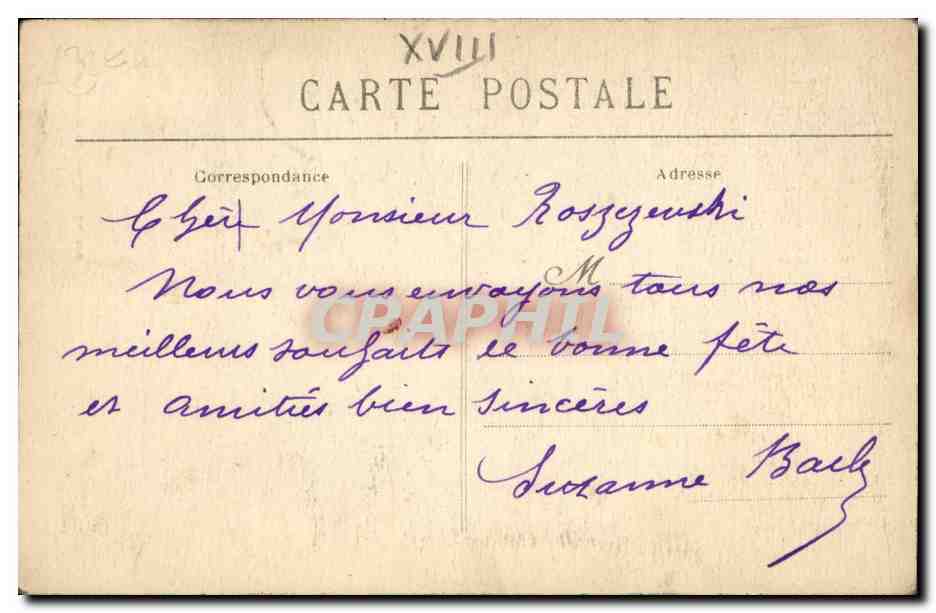 XVIII
CARTE POSTALE
Correspondance
Adresse
Chèr Monsieur Roszezewski
M
Nous vous envoyons tous nos
CPAPHIL
meilleurs souhaits de bonne fête
et amitiés bien sincères
Suzanne